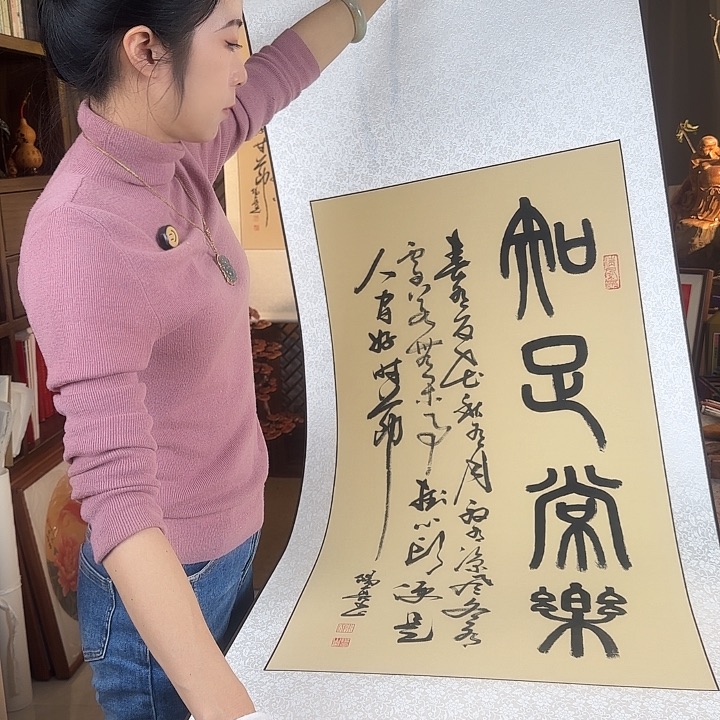 知足常樂
春有百花秋有月夏有涼風冬有
雪若無閑事掛心頭便是
人間好時節